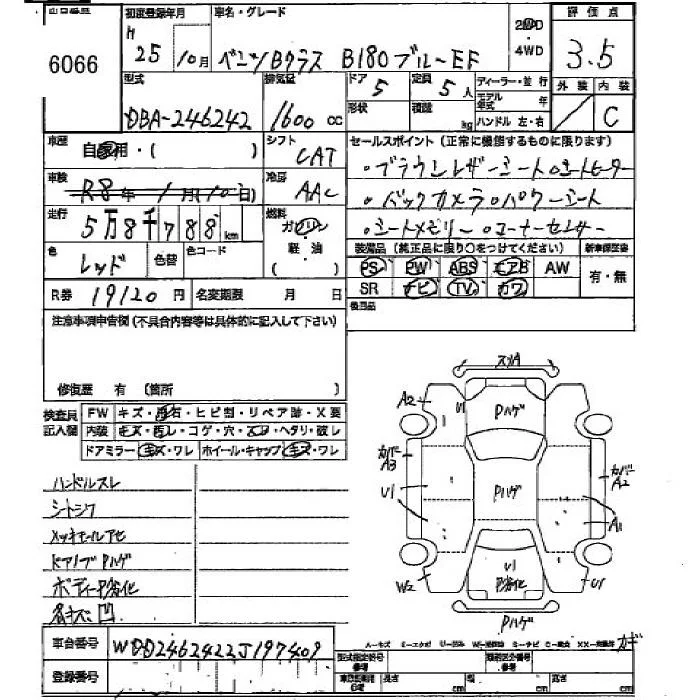 6066
初度登録年月 車名・グレード 評価点
H 25/10月 ベンツBクラス B180ブルーEF 2WD・4WD 3.5
型式 排気量 ドア 定員 ディーラー・並行 外装 内装
DBA-246242 1600cc 5 5人 モデル年式 年 C
形状 積載 kg ハンドル 左・右
車歴 自家用・( ) シフト CAT セールスポイント(正常に機能するものに限ります)
・ブラウンレザーシート・シートヒーター
車検 R8年1月10日 冷房 AAC ・バックカメラ・パワーシート
走行 5万8千788km 燃料 ガソリン ・シートメモリー・コーナーセンサー
色 レッド 色替 色コード 軽・油 ( ) 装備品(純正品に限り〇をつけてください) 新車保証書
PS PW ABS エアB AW 有・無
R券 19120円 名変期限 月 日 SR ナビ TV カワ
注意事項申告欄(不具合内容等は具体的に記入して下さい) 後日品
修復歴 有(箇所 )
検査員記入欄 FW キズ・飛石・ヒビ割・リペア跡・X要
内装 キズ・汚レ・コゲ・穴・スレ・ヘタリ・破レ
ドアミラー キズ・ワレ ホイール・キャップ キズ・ワレ
ハンドルスレ
シートシワ
メッキモールアセ
ドアノブPハゲ
ボディー劣化
各キズ凹
スリA
A2 U1 Pハゲ
カバーA3 カバーA2
U1 Pハゲ A1
W2 U1 劣化 U1
Pハゲ
車台番号 WDD2462422J197409
登録番号
型式指定番号 類別区分番号
長さ cm 幅 cm 高さ cm